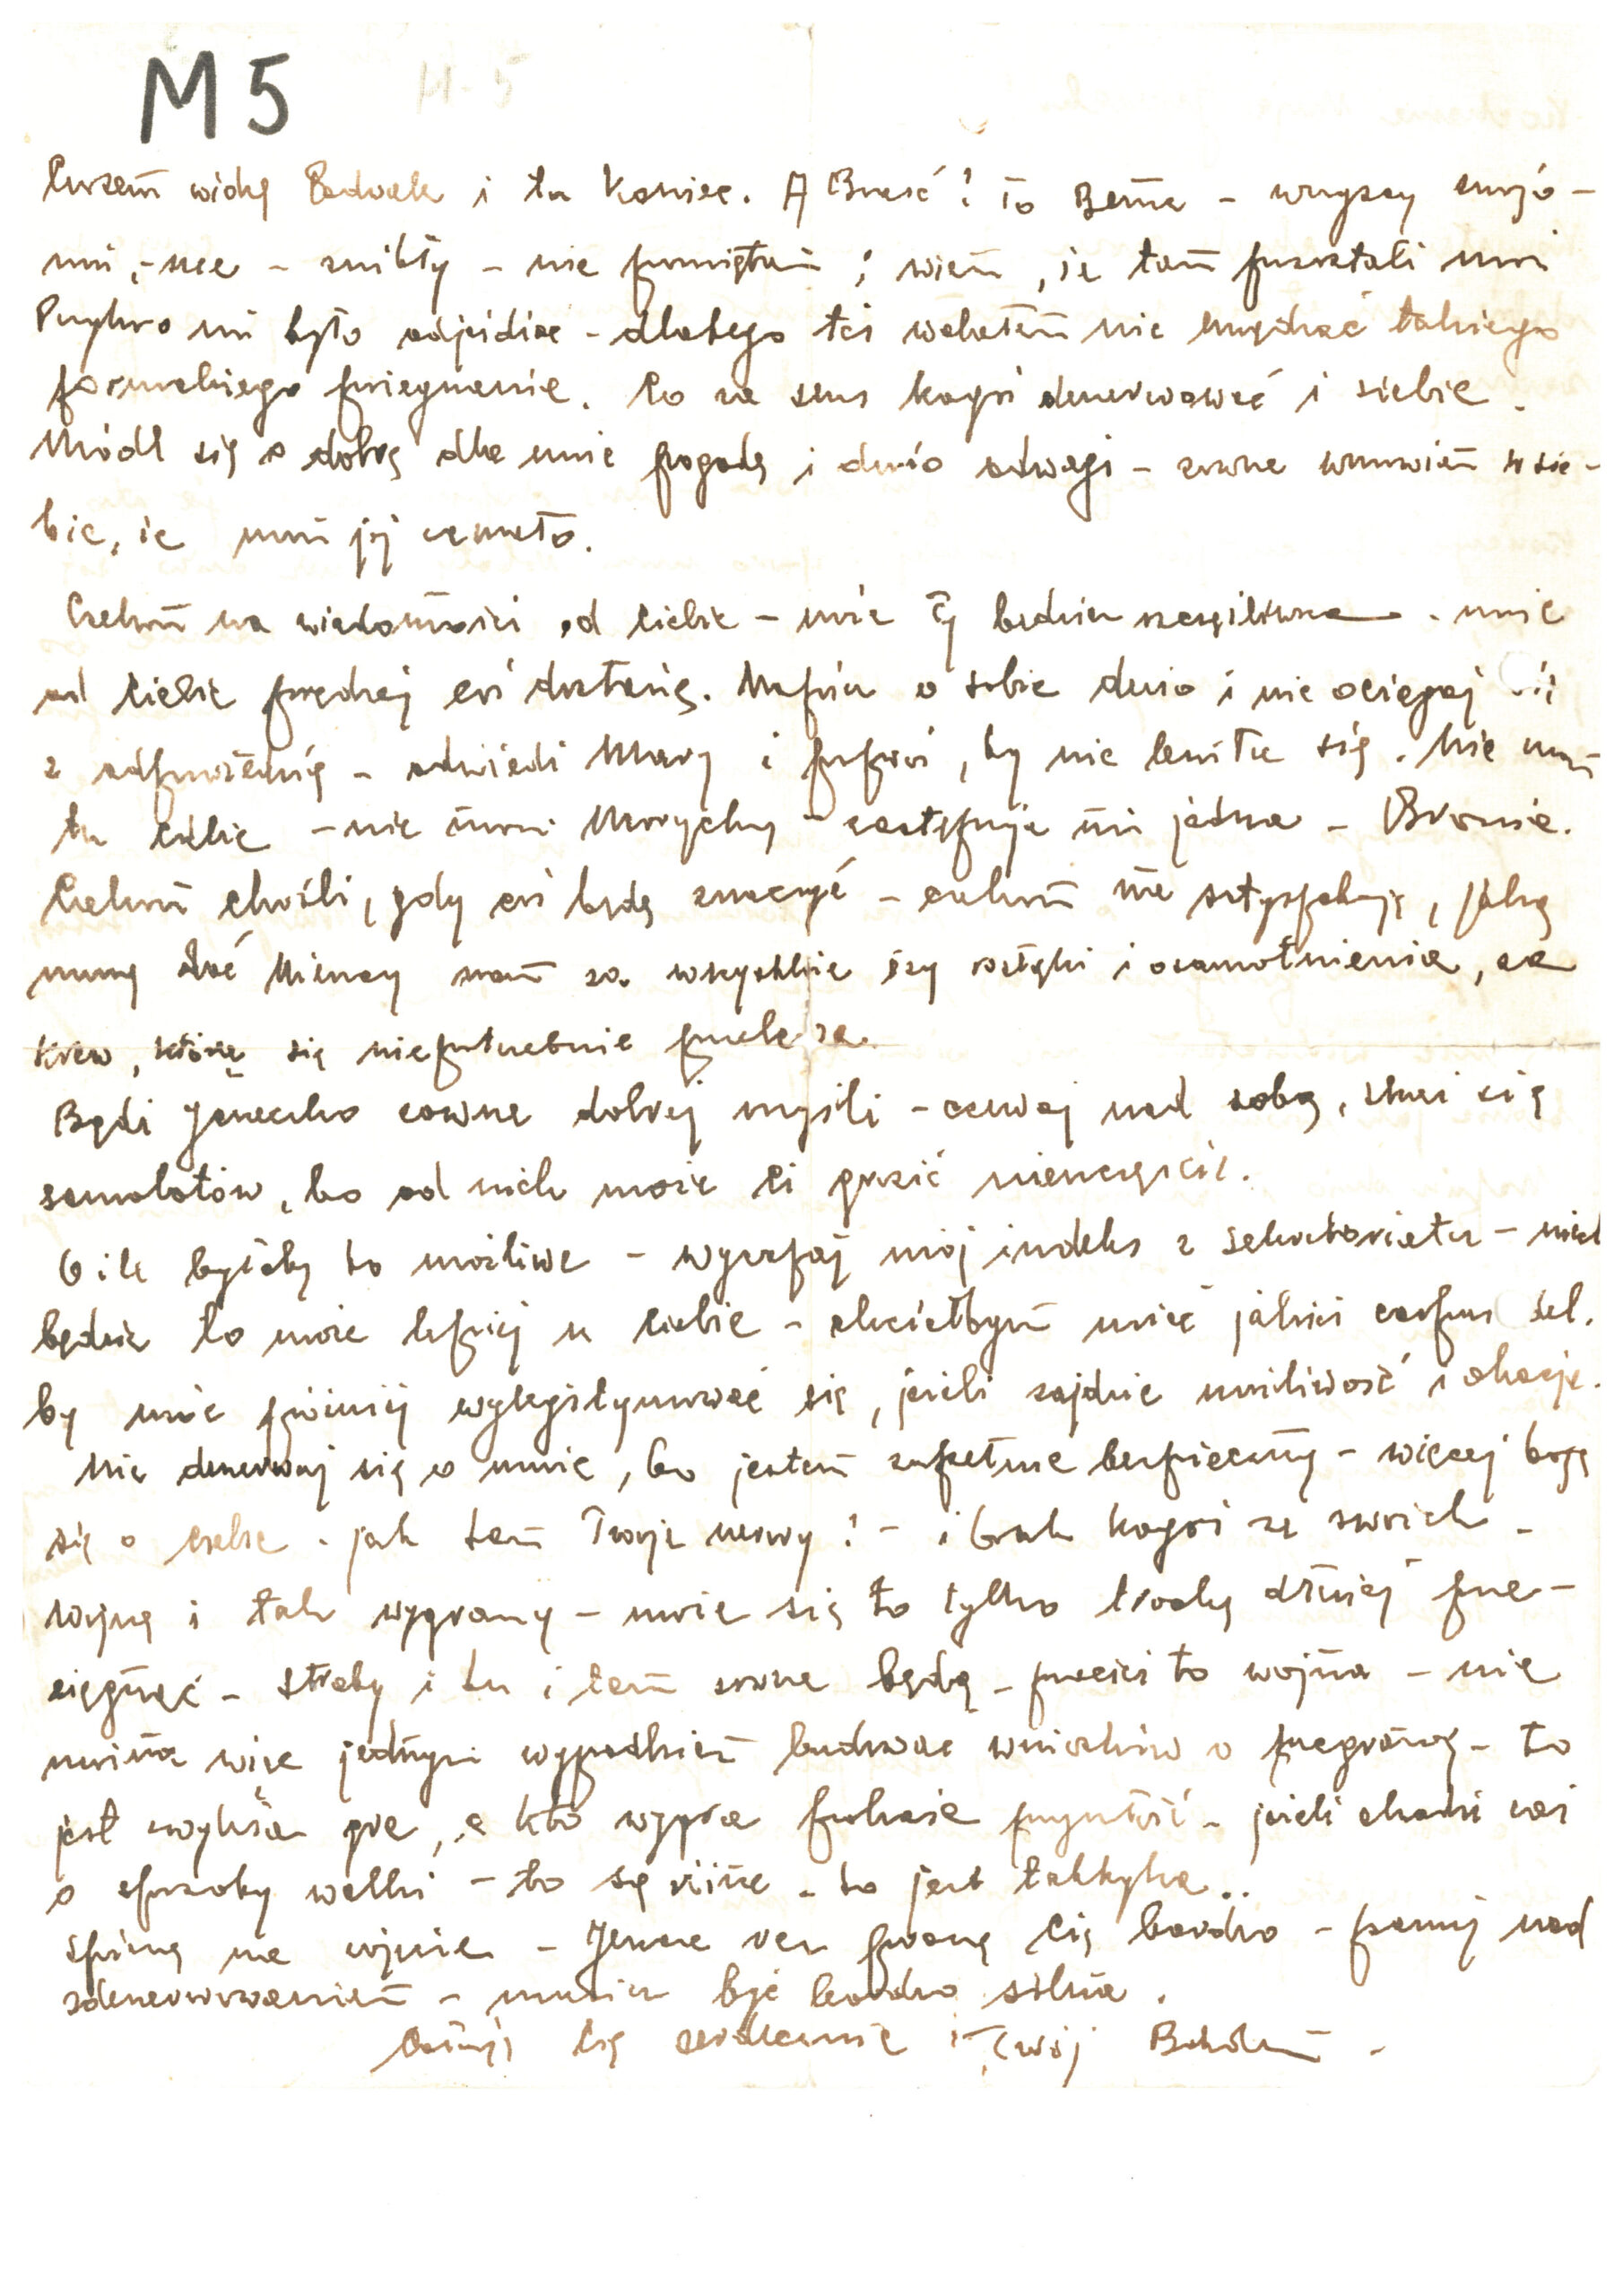 M 5
M-5
Czasem widzę i tu koniec. A Brześć? To Bema - wszyscy znajo-
mi, - - znikły - nie pamiętam; wiem, że tam pozostali moi
Przykro mi było odjeżdżać - dlatego też wolałem nie urządzać takiego
formalnego pożegnania. Co za sens kogoś denerwować i siebie.
Módl się o dobrą dla mnie pogodę i dużo odwagi - zawsze wmawiam w sie-
bie, że mam jej za mało.
Czekam na wiadomości od Ciebie - może Ty będziesz szczęśliwsza. może
od Ciebie prędzej coś dostanę. Napisz o sobie dużo i nie ociągaj się
z odpowiedzią - odwiedź Marę i poproś, by nie leniła się. Nie mam
tu Ciebie - nie mam - zastępuje mi jedna - Bronia.
Czekam chwili, gdy coś będę znaczyć - czekam na satysfakcję, jaką
muszą dać Niemcy nam za wszystkie łzy rozłąki i osamotnienia, za
krew, którą się niepotrzebnie przelewa.
Bądź Janeczko zawsze dobrej myśli - czuwaj nad sobą, strzeż się
samolotów, bo od nich może Ci grozić nieszczęście.
O ile byłoby to możliwe - wyrwij mój indeks z sekretariatu - niech
będzie to może lepiej u Ciebie - chciałbym mieć jakieś corpus del.
by móc później wylegitymować się, jeżeli zajdzie możliwość i okazja.
Nie denerwuj się o mnie, bo jestem zupełnie bezpieczny - więcej boję
się o Ciebie. jak tam Twoje nerwy? - i brak kogoś ze swoich -
Wojnę i tak wygramy - może się to tylko trochę dłużej prze-
ciągnąć - straty i tu i tam zawsze będą - przecież to wojna - nie
można więc jednym wypadkiem budować wniosków o przegranej - to
jest zwykła gra, a kto wygra pokaże przyszłość - jeżeli chodzi zaś
o sposoby walki - to są różne - to jest taktyka..
śpiącą na wojnie - Jeszcze raz proszę Cię bardzo - panuj nad
zdenerwowaniem - musisz być bardzo silna.
Całuję Cię serdecznie Twój Bohdan -